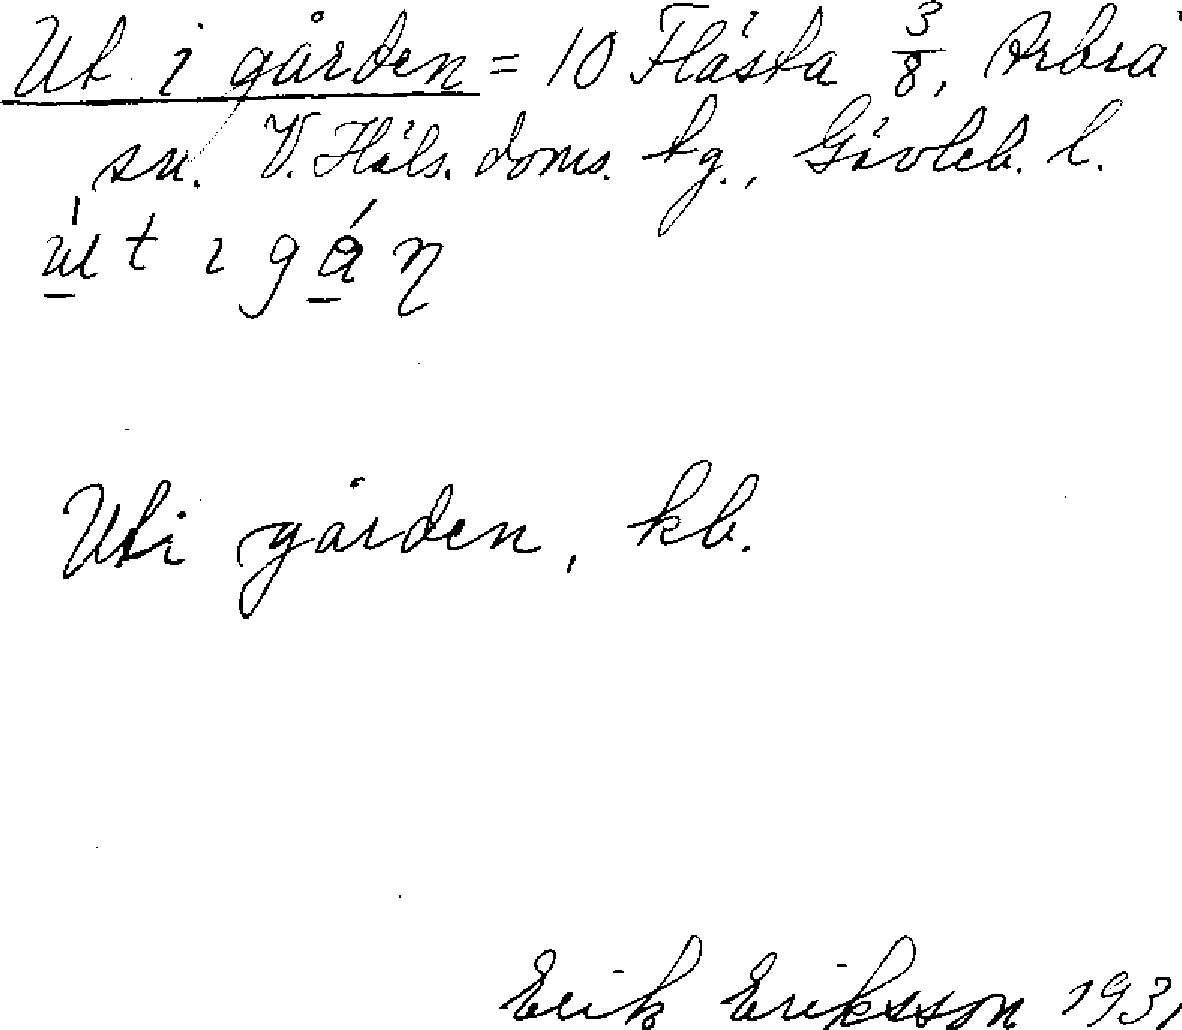 Ut i gården = 10 Flästa 3/8, Arbrå
sn. V. Häls. doms. tg., Gävleb. l.
Uti gården, kb.
Erik Eriksson 1931